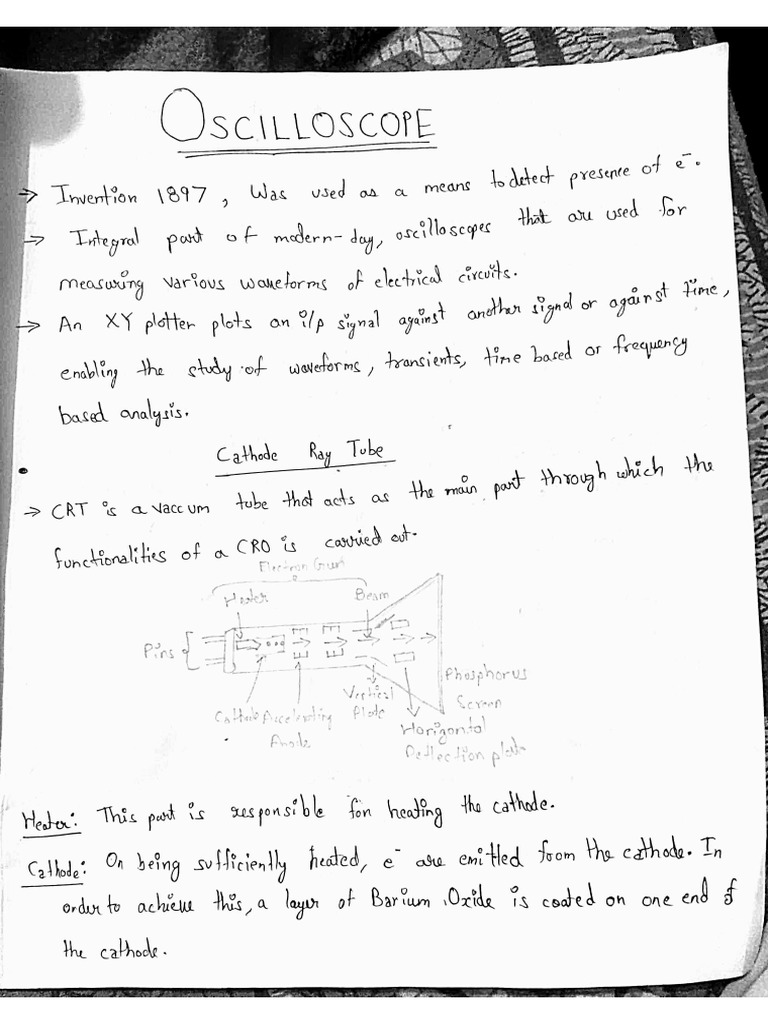 OSCILLOSCOPE
→ Invention 1897, Was used as a means to detect presence of e⁻.
→ Integral part of modern-day, oscilloscopes that are used for
measuring various waveforms of electrical circuits.
→ An XY plotter plots an i/p signal against another signal or against time,
enabling the study of waveforms, transients, time based or frequency
based analysis.
Cathode Ray Tube
→ CRT is a vaccum tube that acts as the main part through which the
functionalities of a CRO is carried out.
Electron Gun
Heater Beam
Pins
Phosphorus
Screen
Vertical
Plate
Cathode Accelerating
Anode
Horizontal
Deflection plate
Heater: This part is responsible for heating the cathode.
Cathode: On being sufficiently heated, e⁻ are emitted from the cathode. In
order to achieve this, a layer of Barium Oxide is coated on one end of
the cathode.